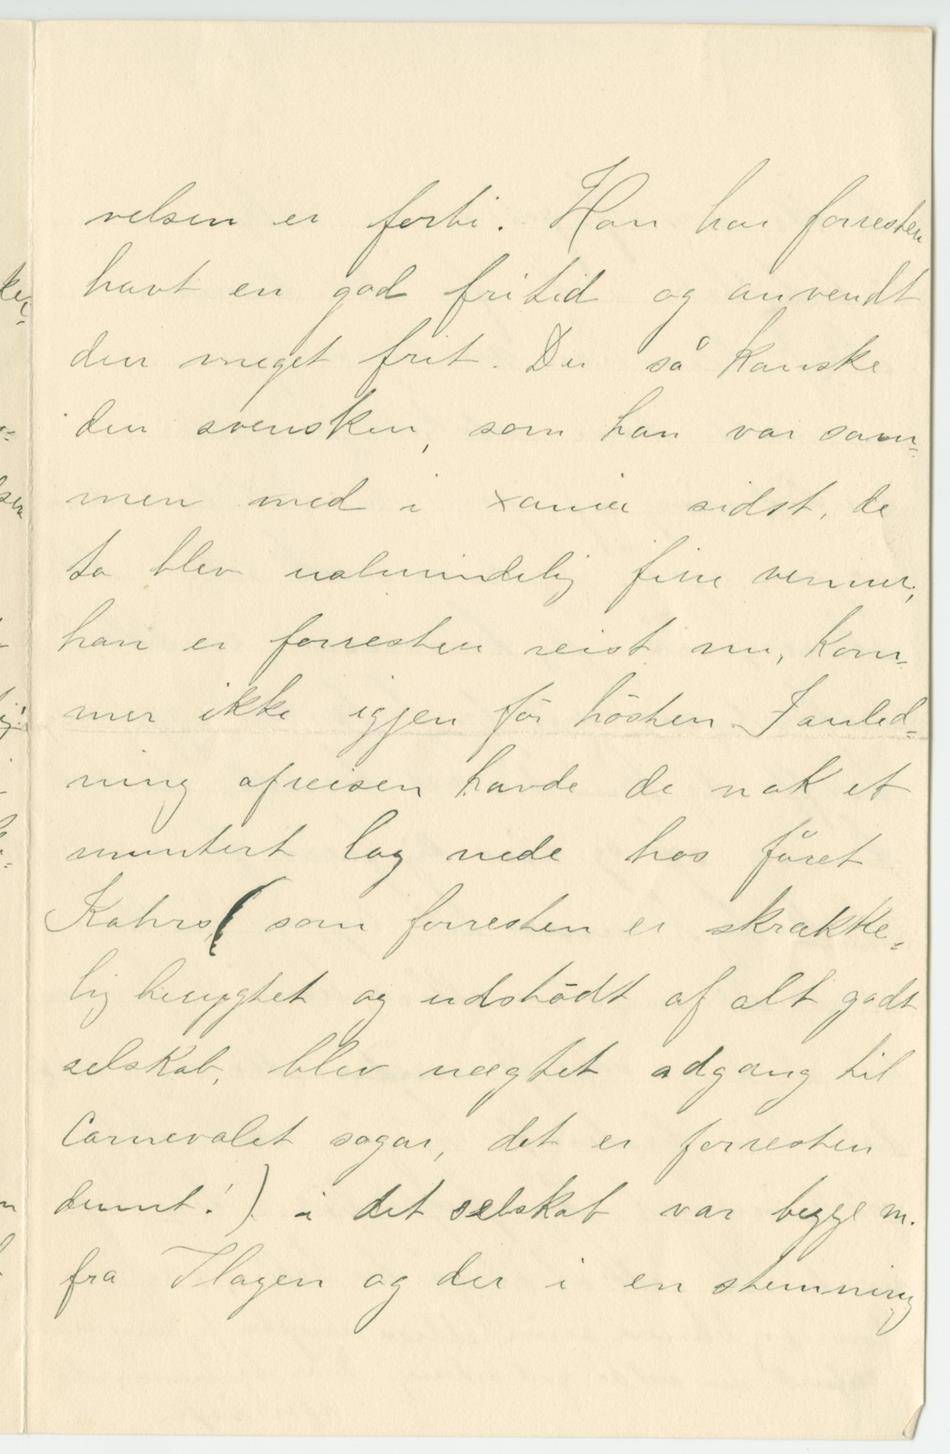 velsen er forbi. Han har forresten
havt en god fritid og anvendt
den meget frit. Du så kanske
den svensken, som han var sam=
men med i xania sidst, de
to blev ualmindelig fine venner,
han er forresten reist nu, kom=
mer ikke igjen før høsten. I anled=
ning afreisen havde de nok et
muntert lag nede hos
Kahrs ( som forresten er skrække=
lig berygtet og udstødt af alt godt
selskab, blev nægtet adgang til
Carnevalet sogar, det er forresten
dumt!) i det selskab var begge m.
fra Hagen og der i en stemning